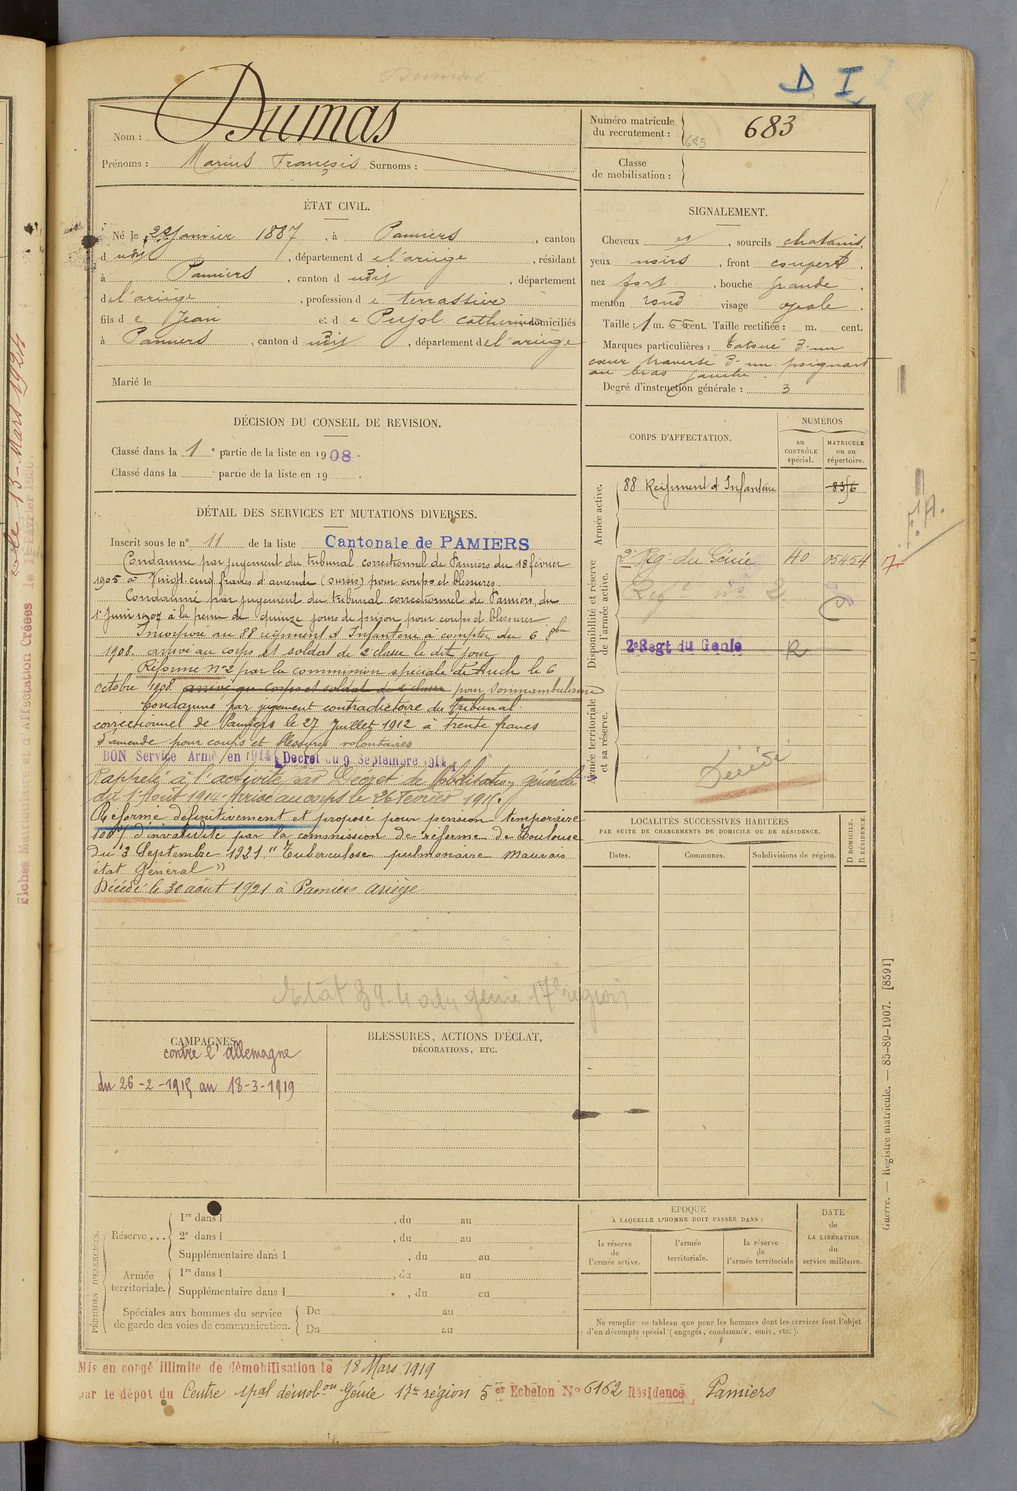 D. I
Nom : Dumas
Prénoms : Marius François Surnoms :
Numéro matricule
du recrutement :
683
Classe
de mobilisation :
ÉTAT CIVIL.
Né le 22 Janvier 1887, à Pamiers, canton
d udit, département de l'ariège, résidant
à Pamiers, canton d udit, département
de l'ariège, profession de terrassier
fils de Jean et de Pujol Catherine domiciliés
à Pamiers, canton d udit, département de l'ariège
Marié le
SIGNALEMENT.
Cheveux et, sourcils chatains,
yeux noirs, front couvert,
nez fort, bouche grande,
menton rond visage ovale.
Taille : 1 m. 66 cent. Taille rectifiée : m. cent.
Marques particulières : tatoué d'un
cœur traversé d'un poignard
au bras gauche.
Degré d'instruction générale : 3
DÉCISION DU CONSEIL DE REVISION.
Classé dans la 1e partie de la liste en 1908.
Classé dans la partie de la liste en 19
DÉTAIL DES SERVICES ET MUTATIONS DIVERSES.
Inscrit sous le n° 11 de la liste Cantonale de PAMIERS
Condamné par jugement du tribunal Correctionnel de Pamiers du 18 février
1905 à Vingt cinq francs d'amende (sursis) pour coups et blessures.
Condamné par jugement du tribunal correctionnel de Pamiers du
1er Juin 1907 à la peine de quinze jours de prison pour coups et blessures
Incorporé au 88e régiment d'Infanterie à compter du 6 8bre
1908. arrivé au corps et soldat de 2e classe le dit jour
Réformé n°2 par la commission spéciale de Auch le 6
octobre 1908. arrivé au corps et soldat de 2e classe pour Somnambulisme
Condamné par jugement contradictoire du tribunal
correctionnel de Pamiers le 27 Juillet 1912 à trente francs
d'amende pour coups et blessures volontaires
BON Service Armé en 1914 (Decret du 9 Septembre 1914)
Rappelé à l'activité par Décret de Mobilisation générale
du 1er Août 1914. Arrivé au corps le 26 Février 1915.
Réformé définitivement et proposé pour pension temporaire
100% d'invalidité par la commission de réforme de Toulouse
du 3 Septembre 1921 "Tuberculose pulmonaire Mauvais
état général"
Décédé le 30 août 1921 à Pamiers ariège
CORPS D'AFFECTATION.
NUMÉROS
AU
CONTRÔLE
spécial.
MATRICULE
ou au
répertoire.
Armée active.
88 Régiment d'Infanterie
Disponibilité et réserve
de l'armée active.
2e Reg. du Génie 40 05454
2e Regt du Genie R
F.A.
Armée territoriale
et sa réserve.
Décédé
LOCALITÉS SUCCESSIVES HABITÉES
PAR SUITE DE CHANGEMENTS DE DOMICILE OU DE RÉSIDENCE.
Dates.
Communes.
Subdivisions de région.
D DOMICILE.
R RÉSIDENCE.
CAMPAGNES
contre l'Allemagne
du 26-2-1915 au 18-3-1919
BLESSURES, ACTIONS D'ÉCLAT,
DÉCORATIONS, ETC.
PÉRIODES D'EXERCICES.
Réserve...
1re dans l , du au
2e dans l , du au
Supplémentaire dans l , du au
Armée
territoriale.
1re dans l , du au
Supplémentaire dans l , du au
Spéciales aux hommes du service
de garde des voies de communication.
Du au
Du au
ÉPOQUE
À LAQUELLE L'HOMME DOIT PASSER DANS :
la réserve
de
l'armée active.
l'armée
territoriale.
la réserve
de
l'armée territoriale
DATE
de
LA LIBÉRATION
du
service militaire.
Ne remplir ce tableau que pour les hommes dont les services font l'objet
d'un décompte spécial (engagés, condamnés, omis, etc.).
Guerre. — Registre matricule. — 85-89-1907. [8591]
Mis en congé illimité de démobilisation le 18 Mars 1919
par le dépôt du Centre spal démobon Génie 17e région 5er Echelon No 6162 Résidence Pamiers